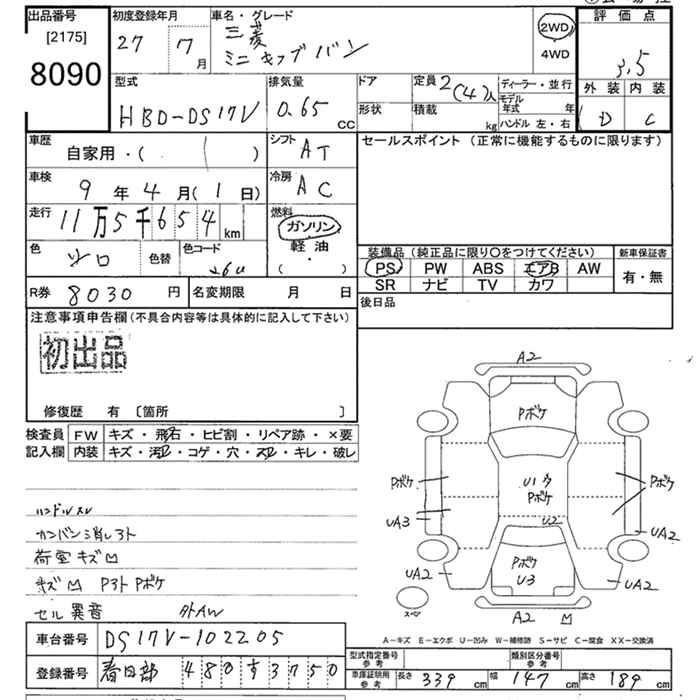 出品番号 初度登録年月 車名・グレード 評価点
[2175] 27 7月 三菱 2WD
8090 ミニキャブバン 4WD 3.5
型式 排気量 ドア 定員 2(4)人 ディーラー・並行 外装 内装
HBD-DS17V 0.65 CC 形状 積載 kg モデル年式 年 D C
ハンドル 左・右
車歴 自家用・( ) シフト AT セールスポイント (正常に機能するものに限ります)
車検 9年4月(1日) 冷房 AC
走行 11万5千654km 燃料 ガソリン
軽油
・
( )
色 シロ 色替 色コード 装備品 (純正品に限り○をつけてください) 新車保証書
PS PW ABS エアB AW 有・無
R券 8030円 名変期限 月 日 SR ナビ TV カワ
後日品
注意事項申告欄(不具合内容等は具体的に記入して下さい)
初出品
修復歴 有 [箇所 ]
検査員 FW キズ・飛石・ヒビ割・リペア跡・×要
記入欄 内装 キズ・汚レ・コゲ・穴・スレ・キレ・破レ
ハンドルスレ
カンバン消しアト
荷室キズ凹
キズ凹 Pアト Pボケ
セル異音 外AW
A2
Pボケ
Pボケ U1多 Pボケ
Pボケ
UA3 U2 UA2
Pボケ
UA2 U3 UA2
スペア A2 凹
A-キズ E-エクボ U-凹み W-補修跡 S-サビ C-腐食 XX-交換済
車台番号 DS17V-102205
型式指定番号 参考 類別区分番号 参考
登録番号 春日部 480す3750 車庫証明用 参考 長さ 339cm 幅 147cm 高さ 189cm